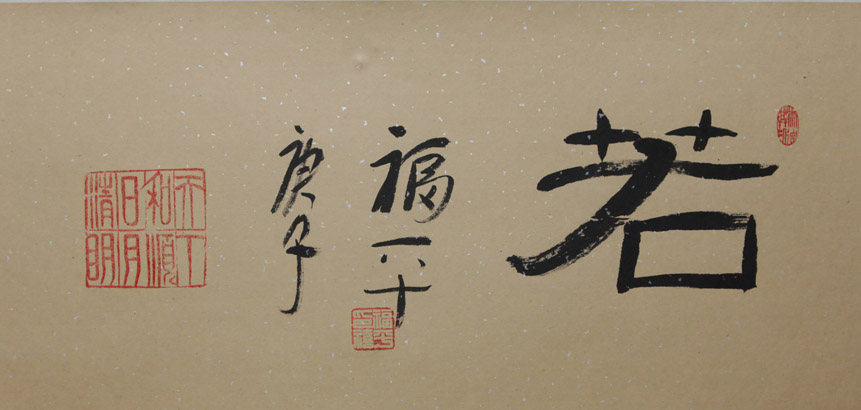 若
福平
庚子
天下
和順
日月
清明